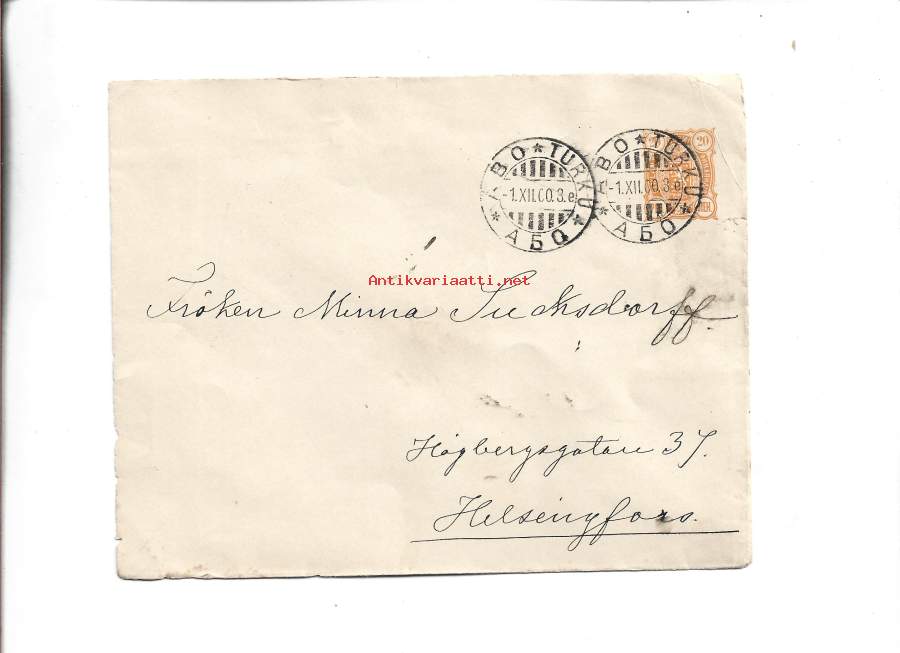 ÅBO * TURKU * АБО *
-1.XII.00.3.e.
ÅBO * TURKU * АБО *
-1.XII.00.3.e.
20
PEN.
Antikvariaatti.net
Fröken Minna Sucksdorff.
Högbergsgatan 37.
Helsingfors.